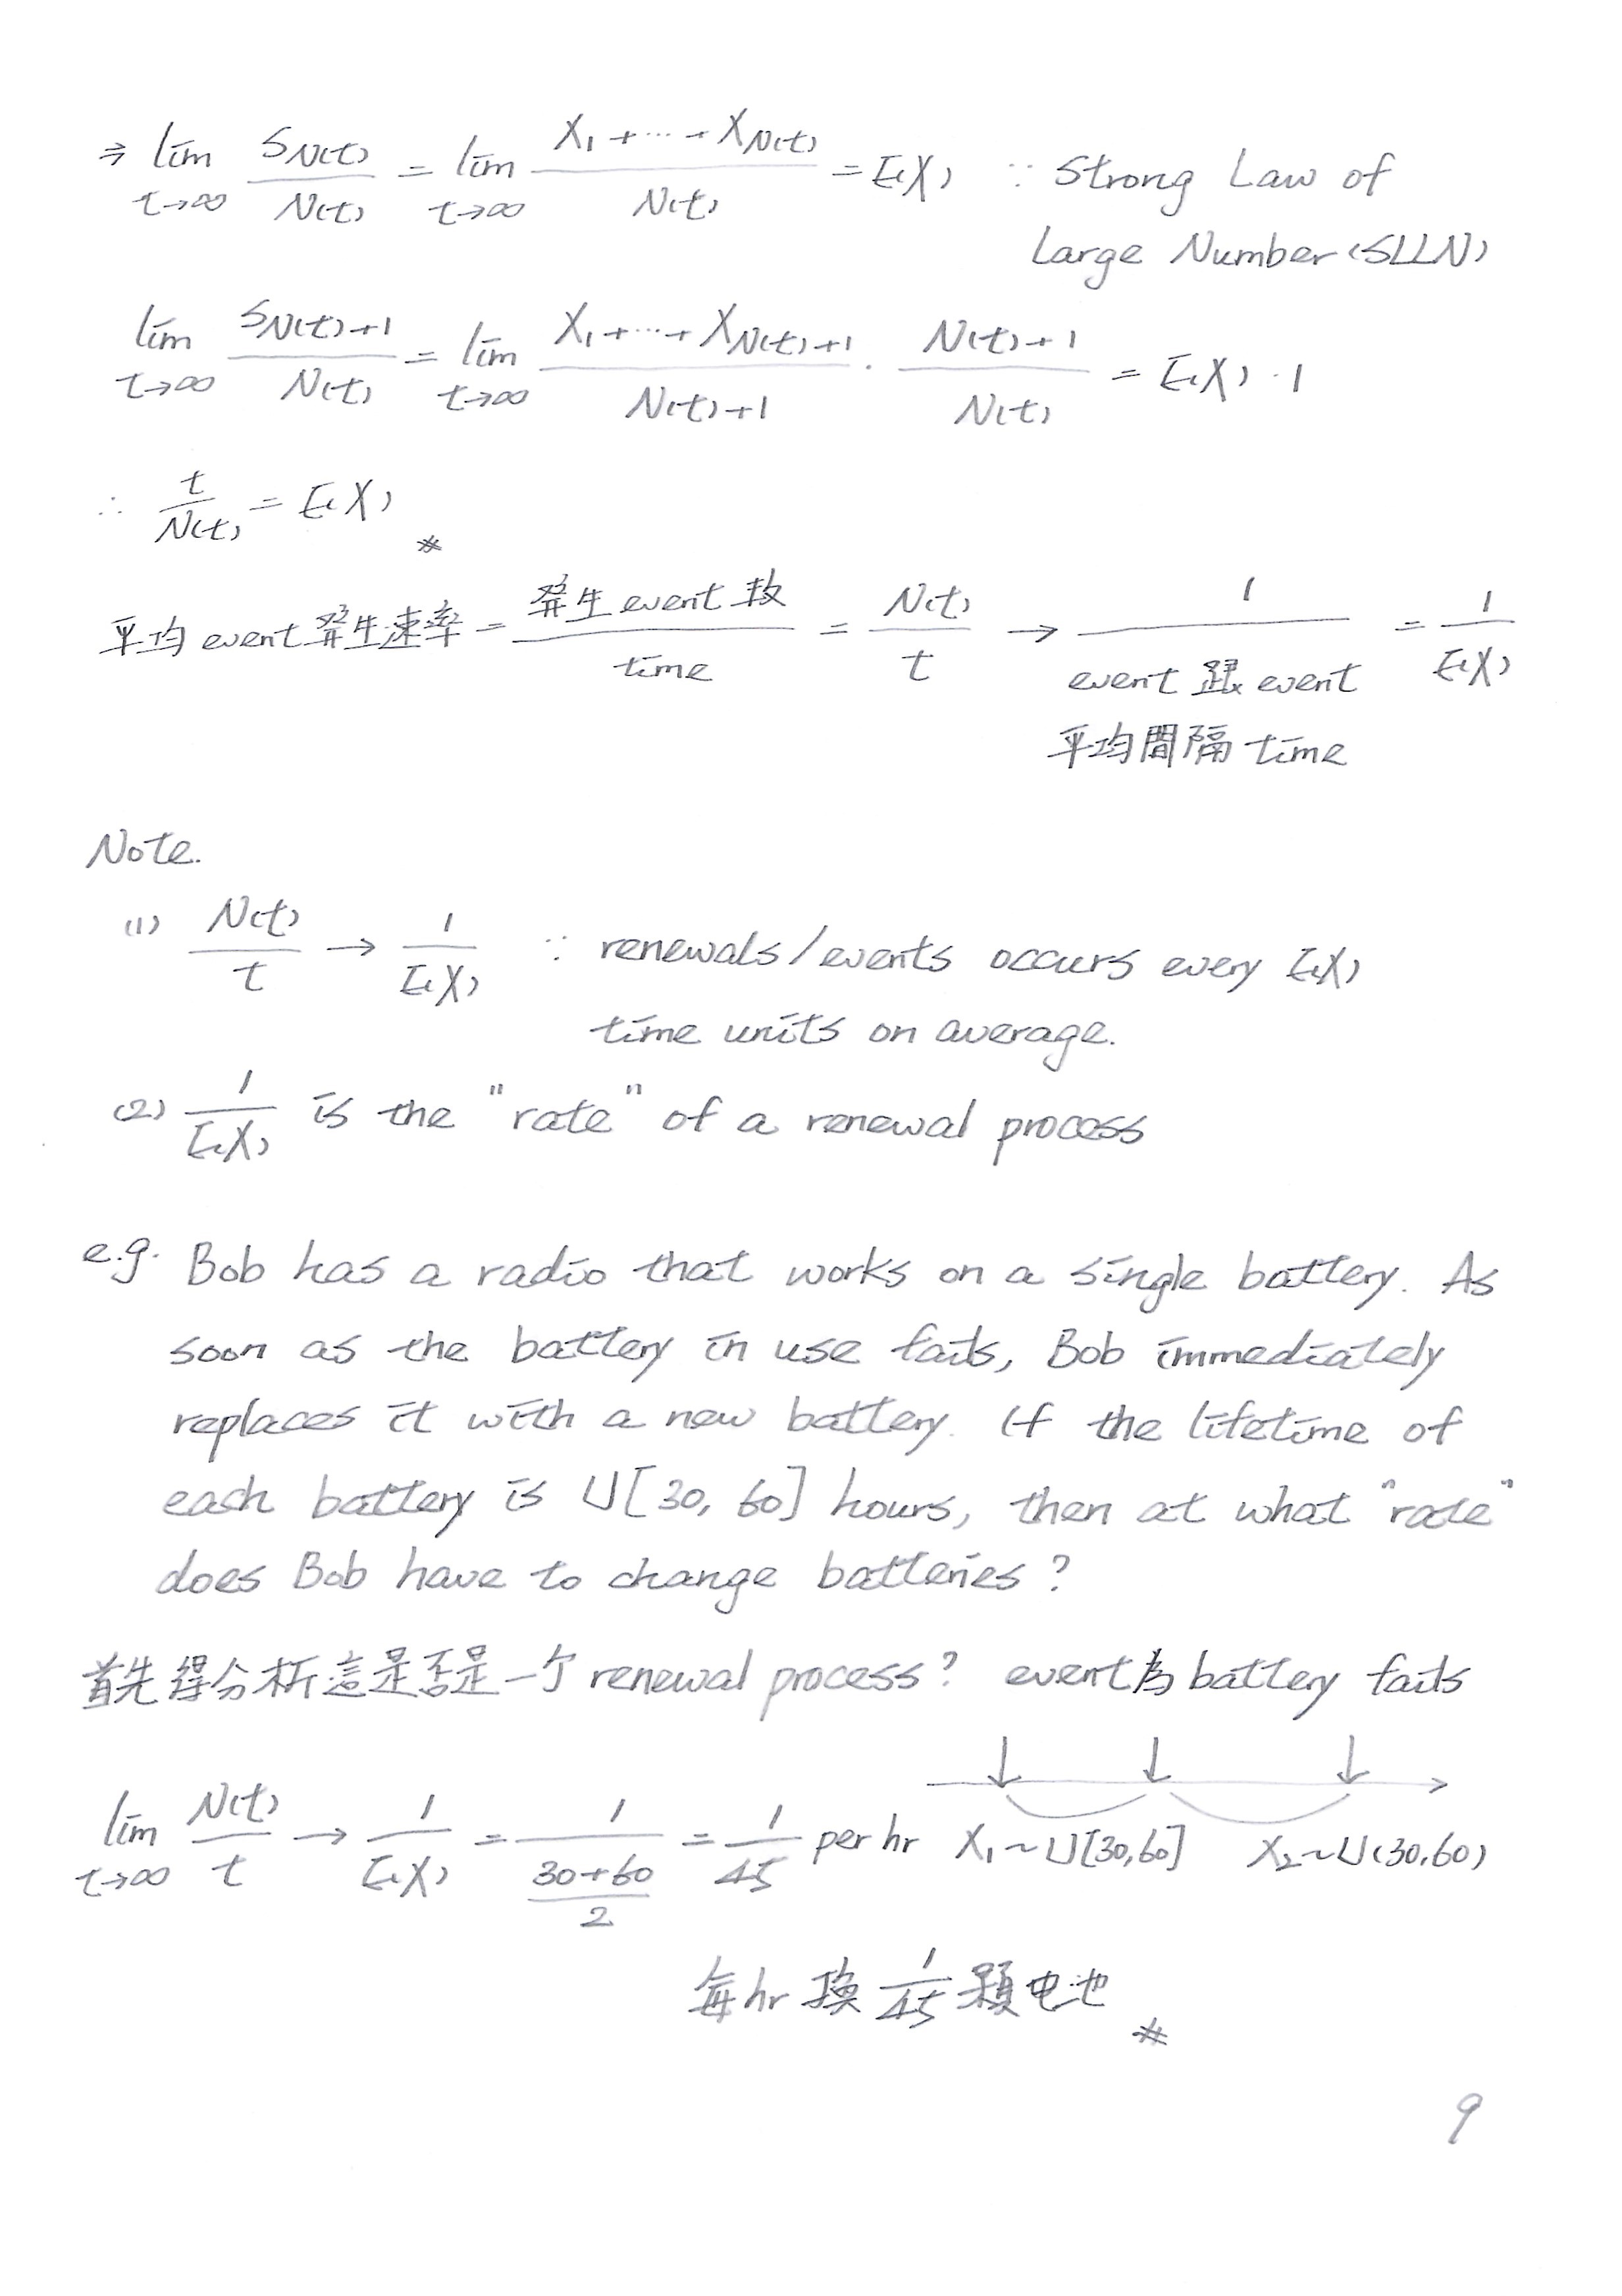 ⇒ lim_{t→∞} S_{N(t)} / N(t) = lim_{t→∞} (X₁ + ⋯ + X_{N(t)}) / N(t) = E(X) ∵ Strong Law of
Large Number (SLLN)
lim_{t→∞} S_{N(t)+1} / N(t) = lim_{t→∞} (X₁ + ⋯ + X_{N(t)+1}) / (N(t)+1) · (N(t)+1) / N(t) = E(X) · 1
∴ t / N(t) = E(X) ※
平均 event 發生速率 = 發生 event 數 / time = N(t) / t → 1 / event 跟 event 平均間隔 time = 1 / E(X)
Note.
(1) N(t) / t → 1 / E(X) ∵ renewals/events occurs every E(X)
time units on average.
(2) 1 / E(X) is the "rate" of a renewal process
e.g. Bob has a radio that works on a single battery. As
soon as the battery in use fails, Bob immediately
replaces it with a new battery. If the lifetime of
each battery is U[30, 60] hours, then at what "rate"
does Bob have to change batteries?
首先得分析這是否是一个 renewal process? event為 battery fails
lim_{t→∞} N(t) / t → 1 / E(X) = 1 / ((30+60) / 2) = 1/45 per hr X₁~U[30,60] X₂~U(30,60)
每hr 換 1/45 顆电池 ※
9